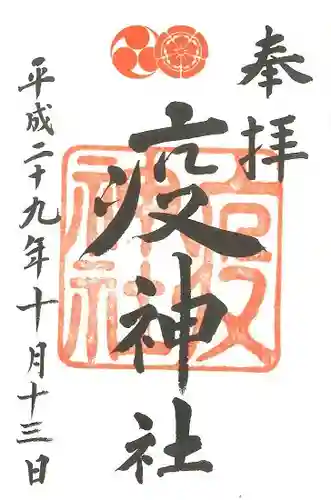 奉拝
疫神社
平成二十九年十月十三日
疫神社